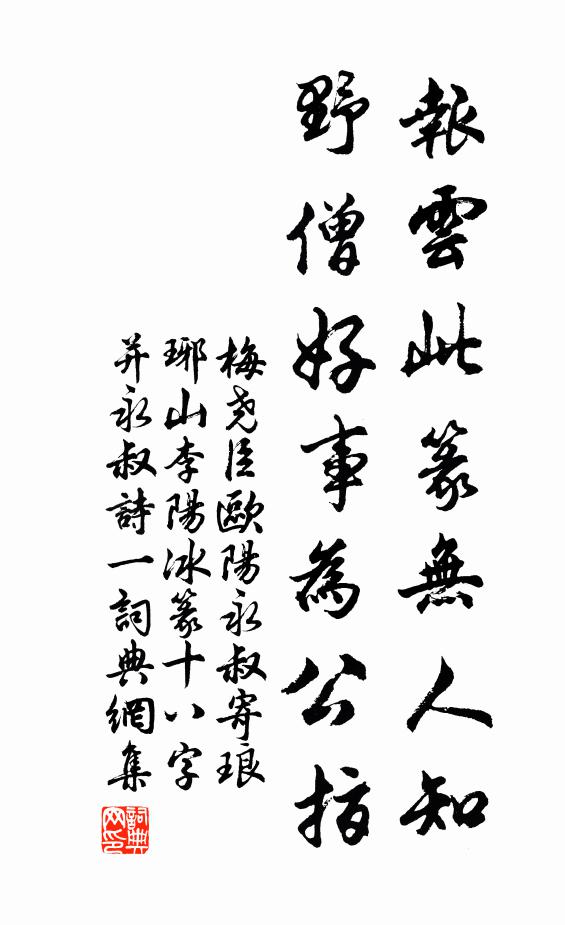 報雲此篆無人知
野僧好事為公指
梅堯臣歐陽永叔寄琅
琊山李陽冰篆十八字
并永叔詩一詞典網集
詞典
网印